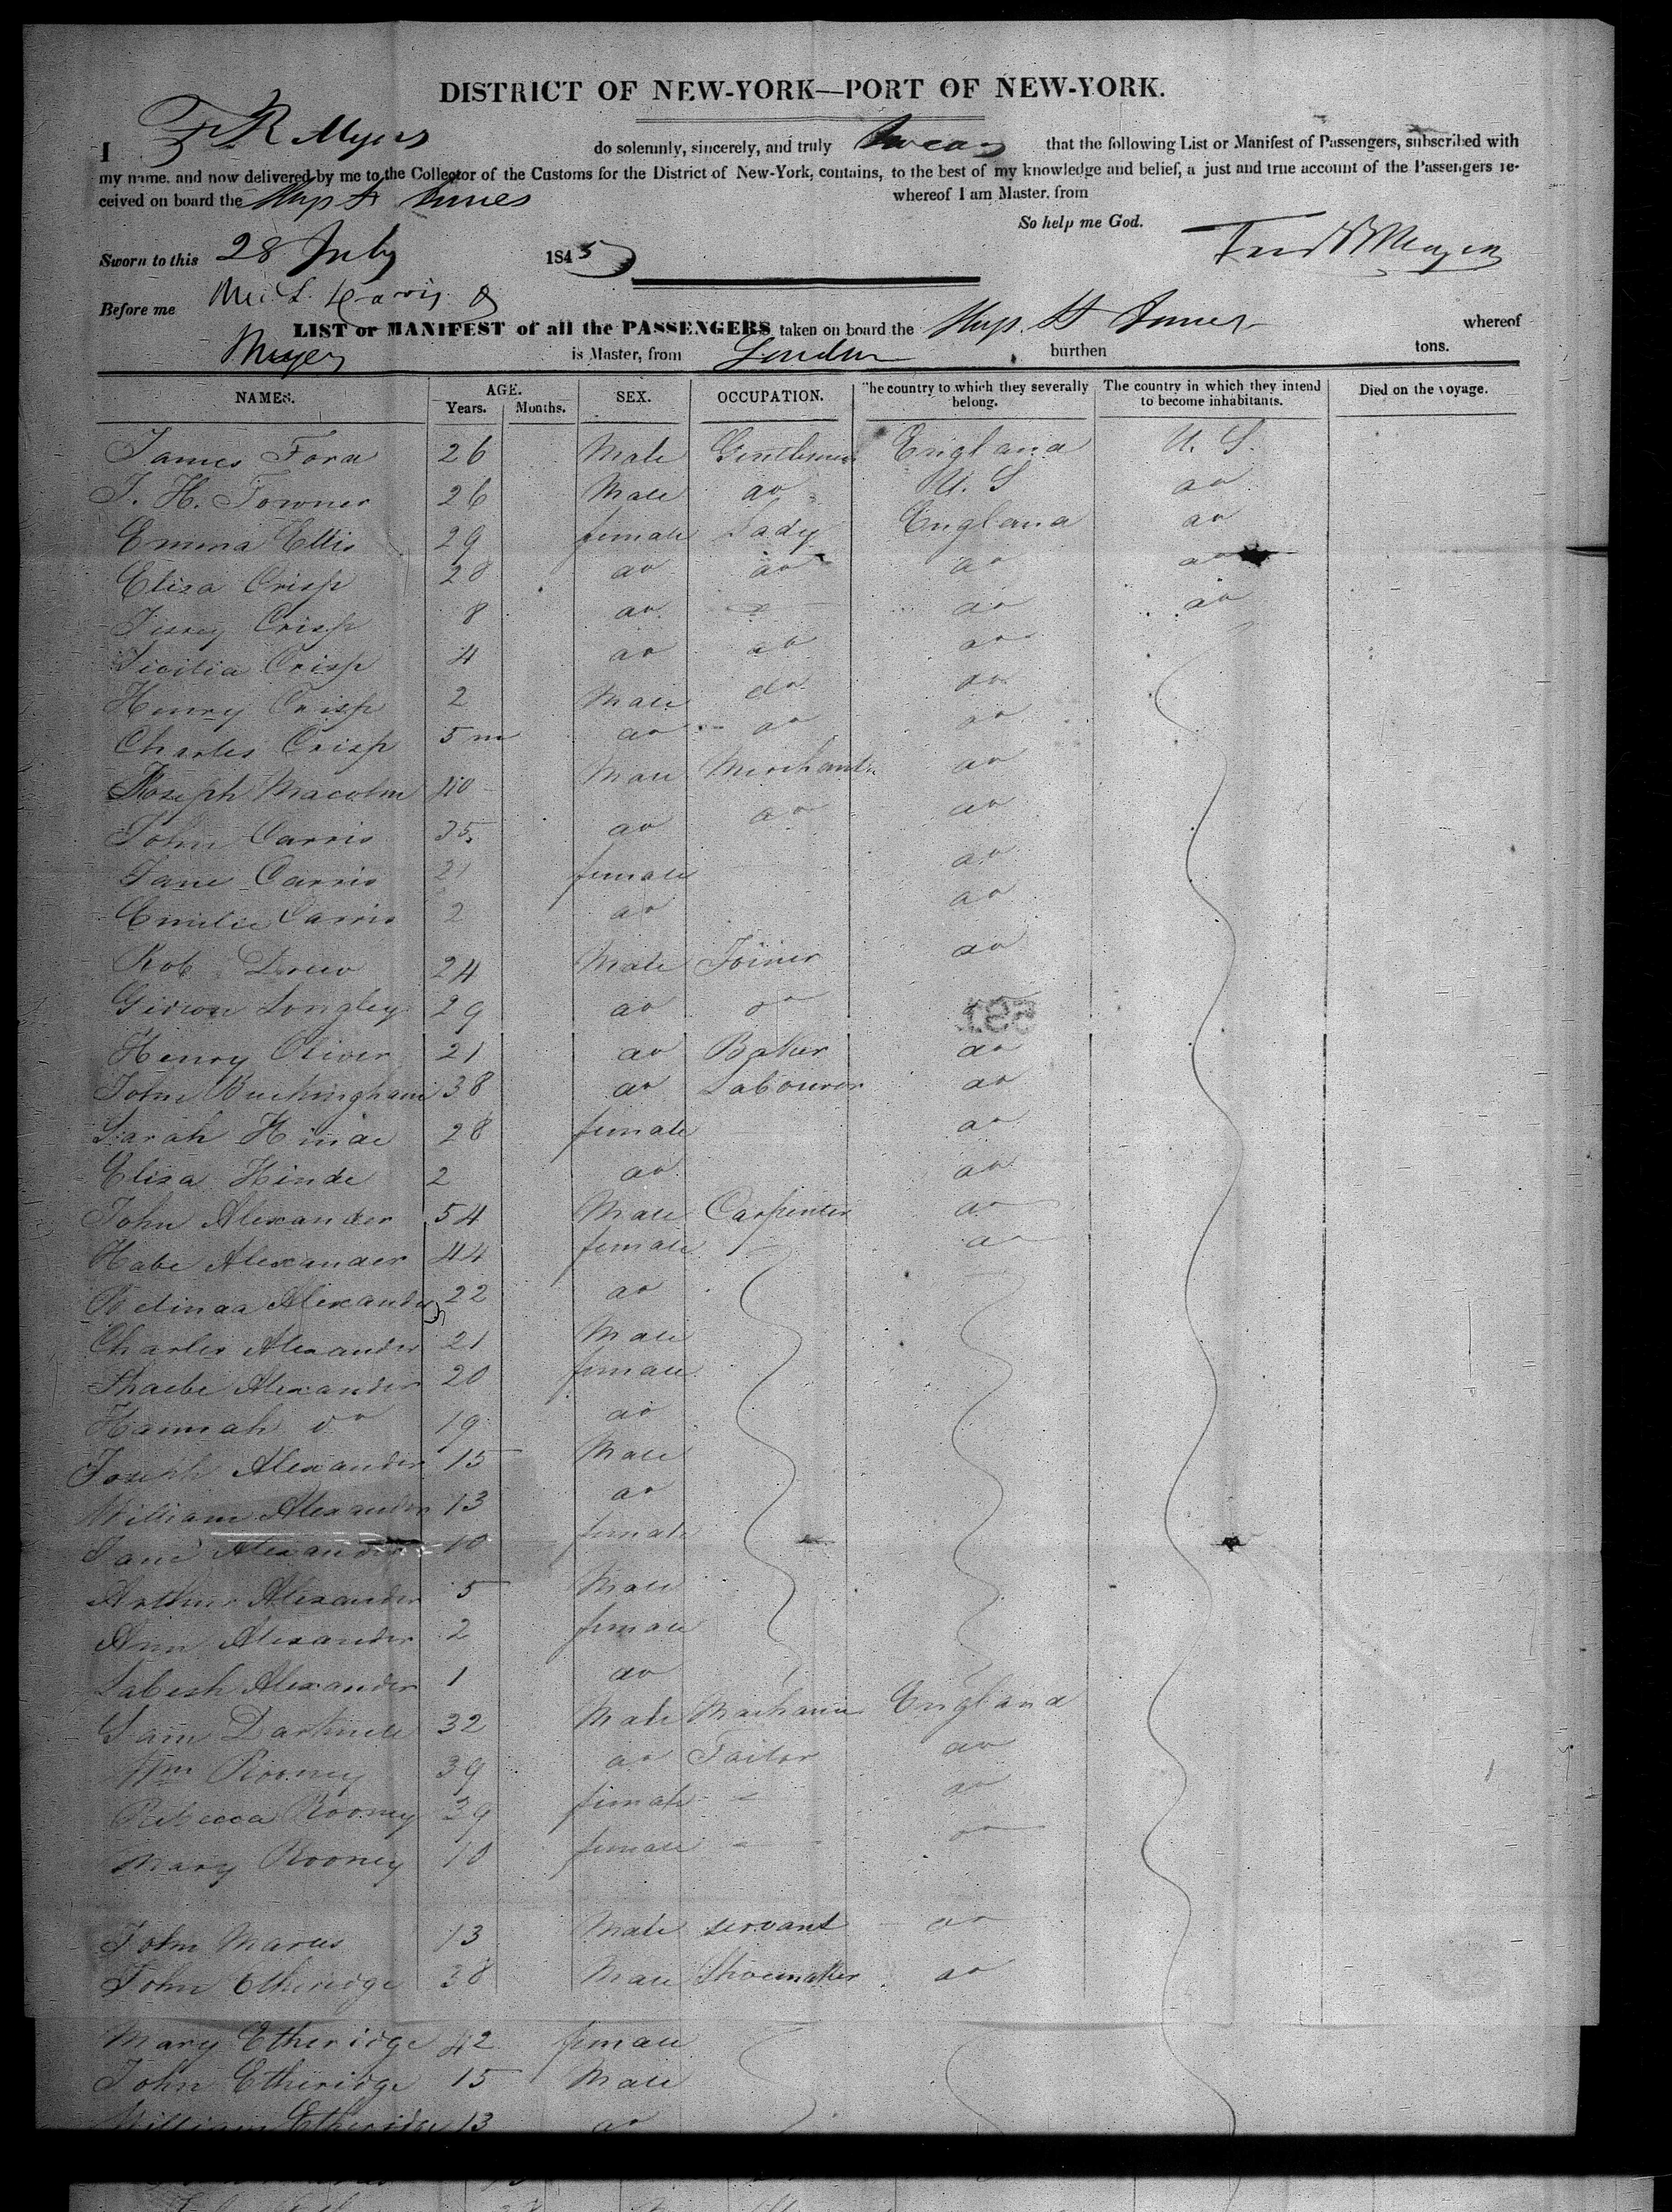 DISTRICT OF NEW-YORK—PORT OF NEW-YORK.
I F R Myers do solemnly, sincerely, and truly Swear that the following List or Manifest of Passengers, subscribed with
my name, and now delivered by me to the Collector of the Customs for the District of New-York, contains, to the best of my knowledge and belief, a just and true account of the Passengers re-
ceived on board the Ship St James whereof I am Master, from
So help me God.
Sworn to this 28 July 1845
Before me
LIST or MANIFEST of all the PASSENGERS taken on board the Ship St James whereof
Meyer is Master, from London burthen tons.
NAMES. AGE. SEX. OCCUPATION. The country to which they severally belong. The country in which they intend to become inhabitants. Died on the voyage.
Years. Months.
James Ford 26 Male Gentleman England U. S.
T. H. Towner 26 Male do U. S do
Emma Ellis 29 female Lady England do
Eliza Crisp 28 do do do do
Crisp 8 do do do
Crisp 4 do do do
Henry Crisp 2 Male do do
Charles Crisp 5 m do do do
Joseph Macolm 40 Male Merchant do
John Carris 35 do do do
Jane Carris 21 female do
Emilie Carris 2 do do
Rob Drew 24 Male Joiner do
Gideon Longley 29 do do
Henry Oliver 21 do Baker do
John Buckingham 38 do Labourer do
Sarah Hinde 28 female do
Eliza Hinde 2 do do
John Alexander 54 Male Carpenter do
Alexander 44 female do
Alexander 22 do
Charles Alexander 21 Male
Phaebe Alexander 20 female
Hannah do 19 do
Joseph Alexander 15 Male
William Alexander 13 do
Jane Alexander 10 female
Arthur Alexander 5 Male
Ann Alexander 2 female
Alexander 1 do
Sam 32 Male England
Wm Rooney 39 do Tailor do
Rebecca Rooney 39 female do
Mary Rooney 10 female do
John 13 Male servant do
John Etheridge 38 Male Shoemaker do
Mary Etheridge 42 female
John Etheridge 15 Male
William Etheridge 13 do